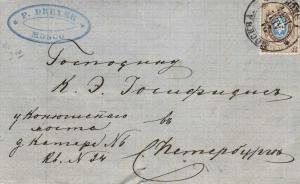 P. DREYER
MOSCO
Господину
К. Э. Госифидисъ
у Конюшенного
моста въ
д. Катерб № 6
Кв. № 34 С. Петербургѣ